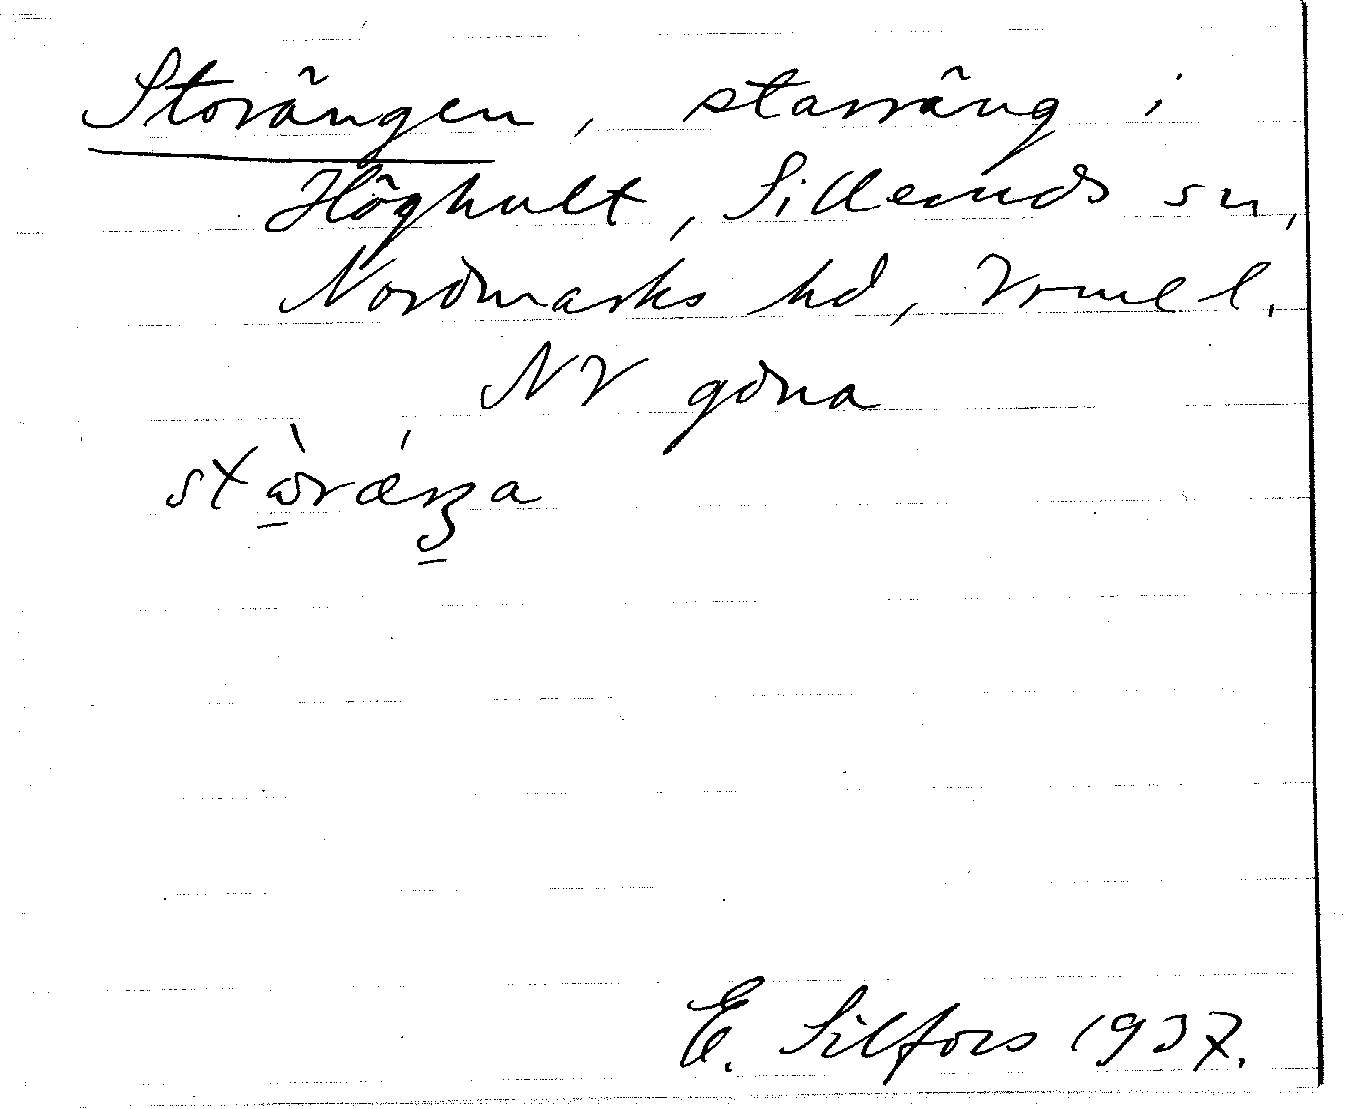 Storängen, starräng i
Höghult, Silleruds sn,
Nordmarks hd, Vrml l.
NV gdna
E. Silfors 1937.